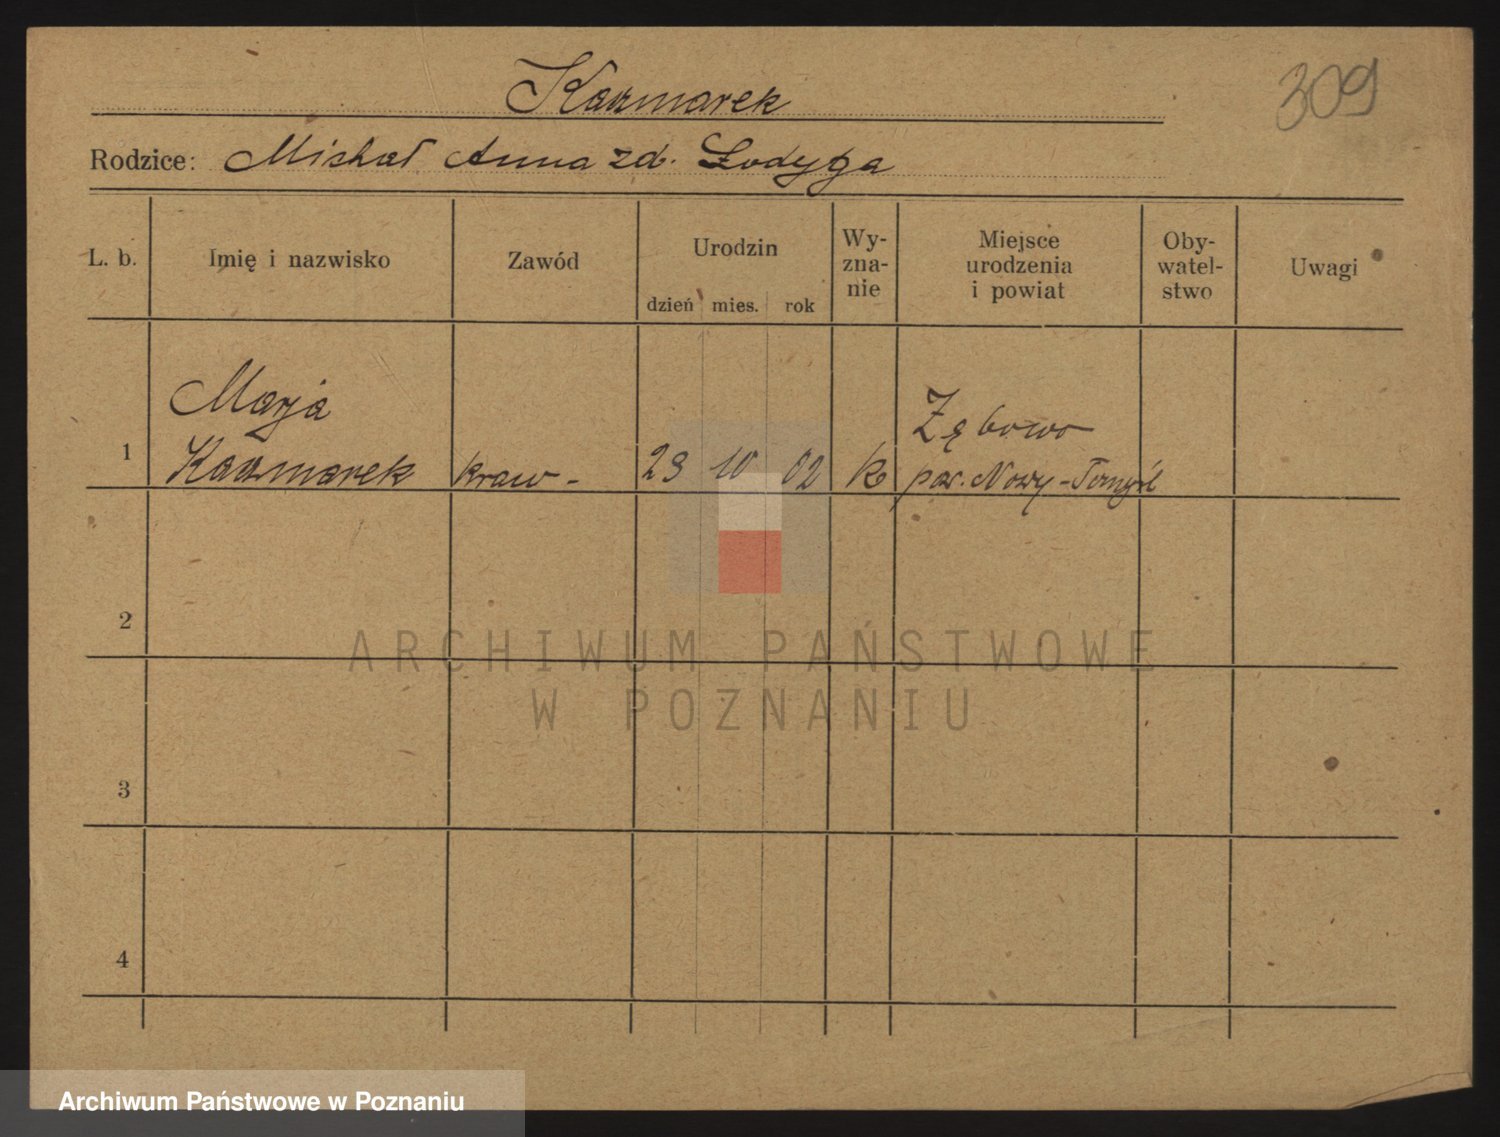 Kaczmarek
309
Rodzice: Michał Anna zd. Łodyga
L. b.
Imię i nazwisko
Zawód
Urodzin
dzień mies. rok
Wy-
zna-
nie
Miejsce
urodzenia
i powiat
Oby-
watel-
stwo
Uwagi
1
Marja
Kaczmarek
kraw-
23 10 02
k
Zębowo
pow. Nowy-Tomyśl
2
3
4
ARCHIWUM PAŃSTWOWE
W POZNANIU
Archiwum Państwowe w Poznaniu